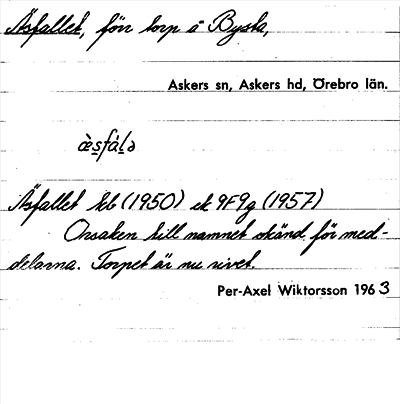 Äsfallet, förr torp å Bysta,
Askers sn, Askers hd, Örebro län.
æ̀s̱fáḻə
Äsfallet kb (1950) ek 9F9g (1957)
Orsaken till namnet okänd för med-
delarna. Torpet är nu rivet.
Per-Axel Wiktorsson 1963